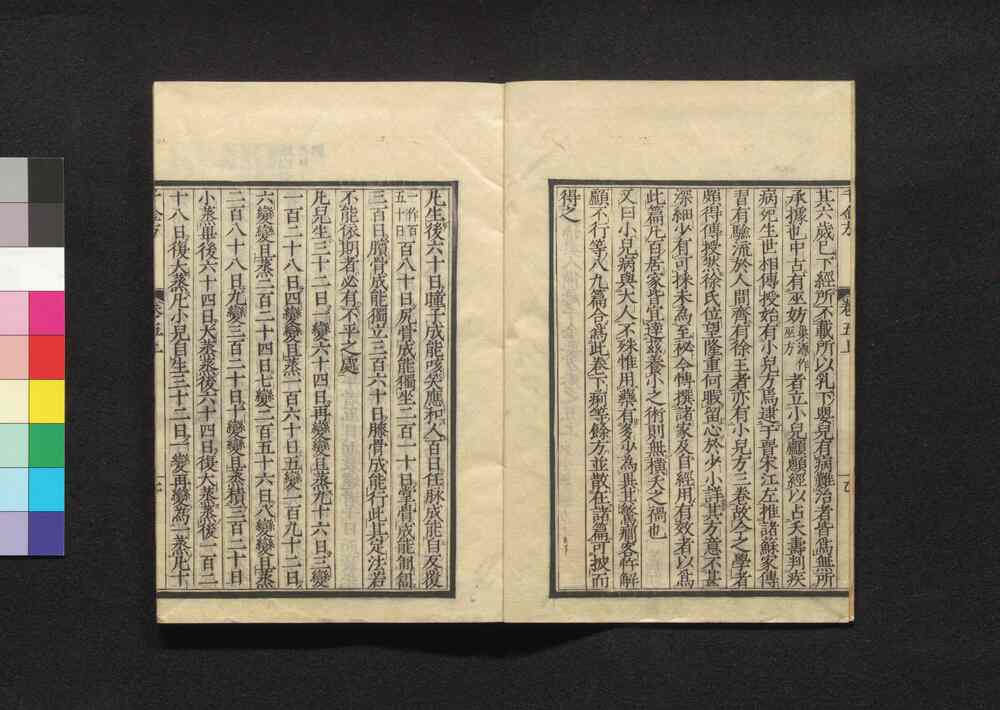 其六歲已下經所不載所以乳下嬰兒有病難治者皆爲無所
承據也中古有巫妨巢源作巫方者立小兒顱顖經以占夭壽判疾
病死生世相傳授始有小兒方焉逮于晉宋江左推諸蘇家傳
習有驗流於人間齊有徐王者亦有小兒方三卷故今之學者
頗得傳授然徐氏位望隆重何暇留心於少小詳其方意不甚
深細少有可採未爲至秘今博撰諸家及自經用有效者以爲
此篇凡百居家皆宜達茲養小之術則無橫夭之禍也
又曰小兒病與大人不殊惟用藥有多少爲異其驚癇客忤解
顱不行等八九篇合爲此卷下痢等餘方並散在諸篇可披而
得之
千金方
卷五上
凡生後六十日瞳子成能咳笑應和人百日任脉成能自反覆
一作百五十日百八十日尻骨成能獨坐二百一十日掌骨成能匍匐
三百日臏骨成能獨立三百六十日膝骨成能行此其定法若
不能依期者必有不平之處
凡兒生三十二日一變六十四日再變變且蒸九十六日三變
一百二十八日四變變且蒸一百六十日五變一百九十二日
六變變且蒸二百二十四日七變二百五十六日八變變且蒸
二百八十八日九變三百二十日十變變且蒸積三百二十日
小蒸畢後六十四日大蒸蒸後六十四日復大蒸蒸後一百二
十八日復大蒸凡小兒自生三十二日一變再變爲一蒸凡十
千金方
卷五上